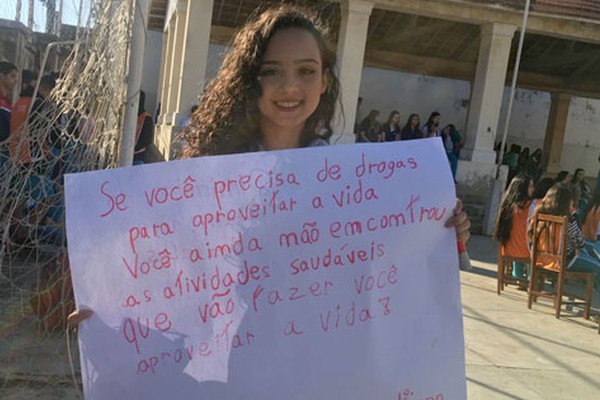 Se você precisa de drogas
para aproveitar a vida
Você ainda não emcomtrou
as atividades saudáveis
que vão fazer você
aproveitar a vida?
1º